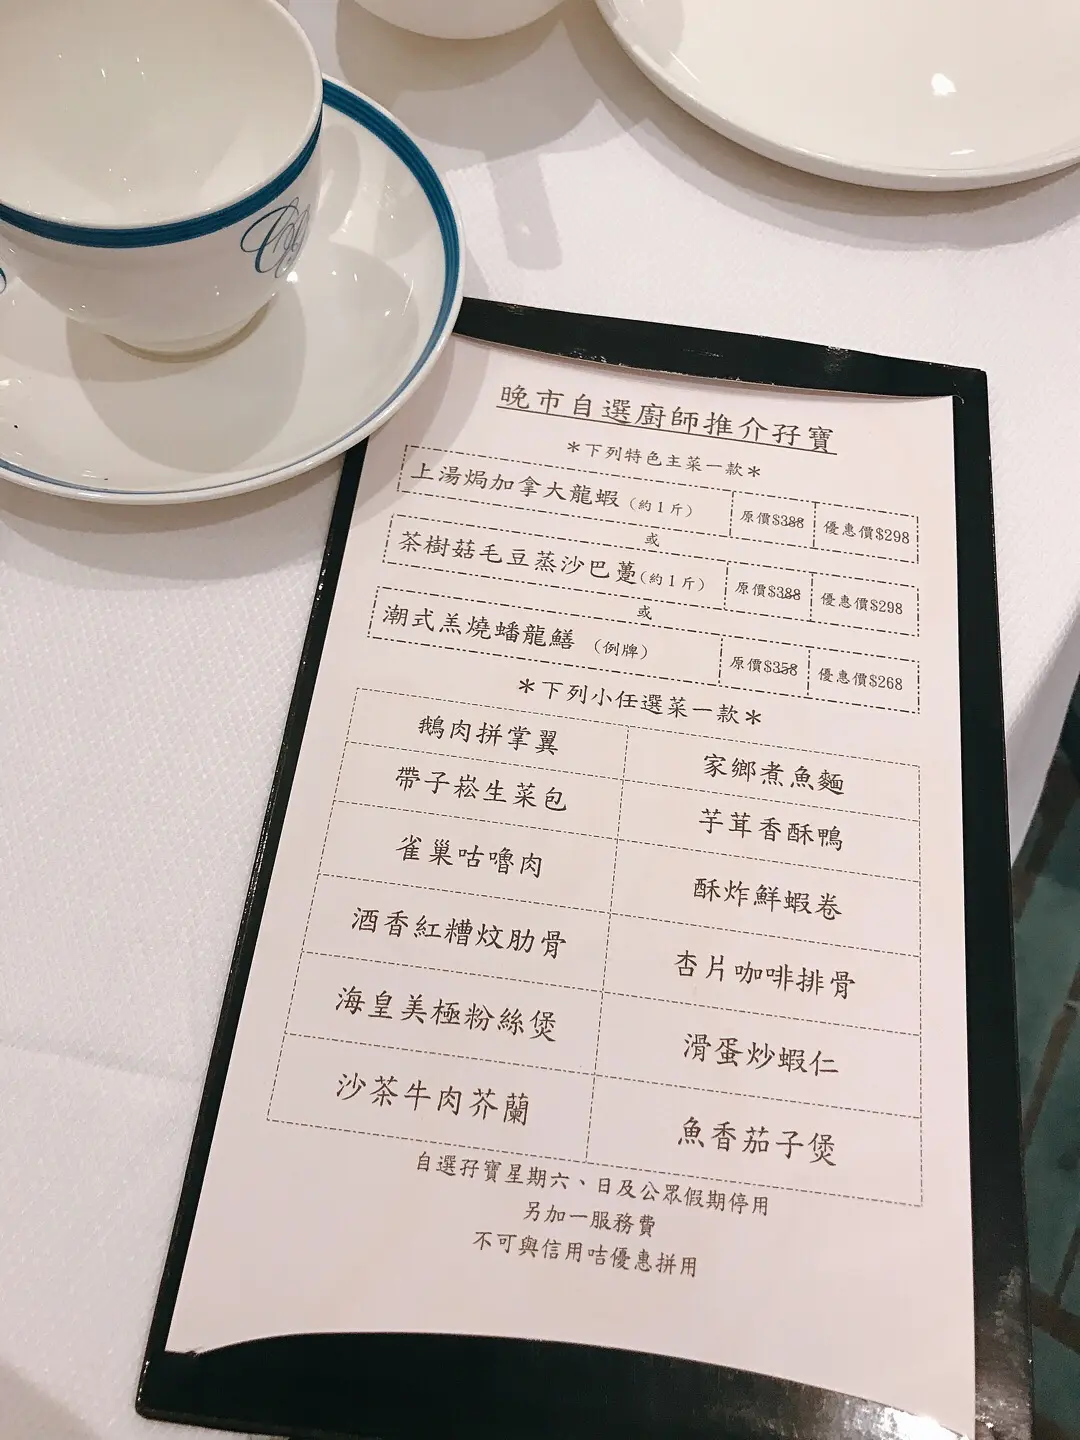 晚市自選廚師推介孖寶
＊下列特色主菜一款＊
上湯焗加拿大龍蝦（約1斤） 原價$388 優惠價$298
或
茶樹菇毛豆蒸沙巴躉（約1斤） 原價$388 優惠價$298
或
潮式羔燒蟠龍鱔（例牌） 原價$358 優惠價$268
＊下列小任選菜一款＊
鵝肉拼掌翼 家鄉煮魚麵
帶子崧生菜包 芋茸香酥鴨
雀巢咕嚕肉 酥炸鮮蝦卷
酒香紅糟炆肋骨 杏片咖啡排骨
海皇美極粉絲煲 滑蛋炒蝦仁
沙茶牛肉芥蘭 魚香茄子煲
自選孖寶星期六、日及公眾假期停用
另加一服務費
不可與信用咭優惠拼用